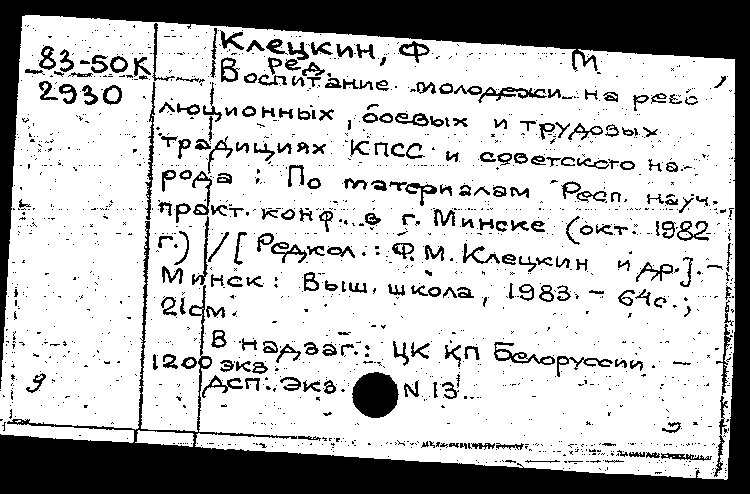 Клецкин, Ф М
83-50К
2930
ред.
Воспитание молодежи на рево
люционных, боевых и трудовых
традициях КПСС и советского на-
рода : По материалам Респ. науч.
практ. конф. в г. Минске (окт. 1982
г.) / [Редкол. : Ф.М. Клецкин и др.]. –
Минск : Выш. школа, 1983. – 64с. ;
21см.
В надзаг. : ЦК КП Белоруссии. –
1200 экз.
ДСП. Экз. N 13.